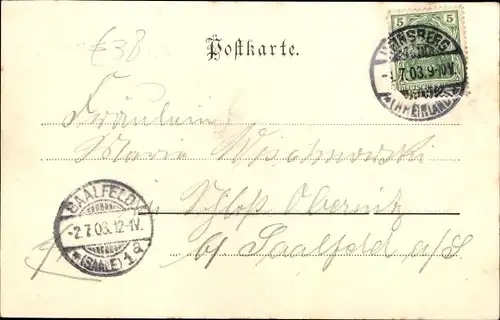 £38
Postkarte.
5 5
HEINSBERG
-1.7.03.9-10V.
*(RHEINLAND)
Fräulein
Marie Wischnowski
Schloß Obernitz
b/ Saalfeld a/S.
SAALFELD
-2.7.03.12-1V.
*(SAALE) 1a